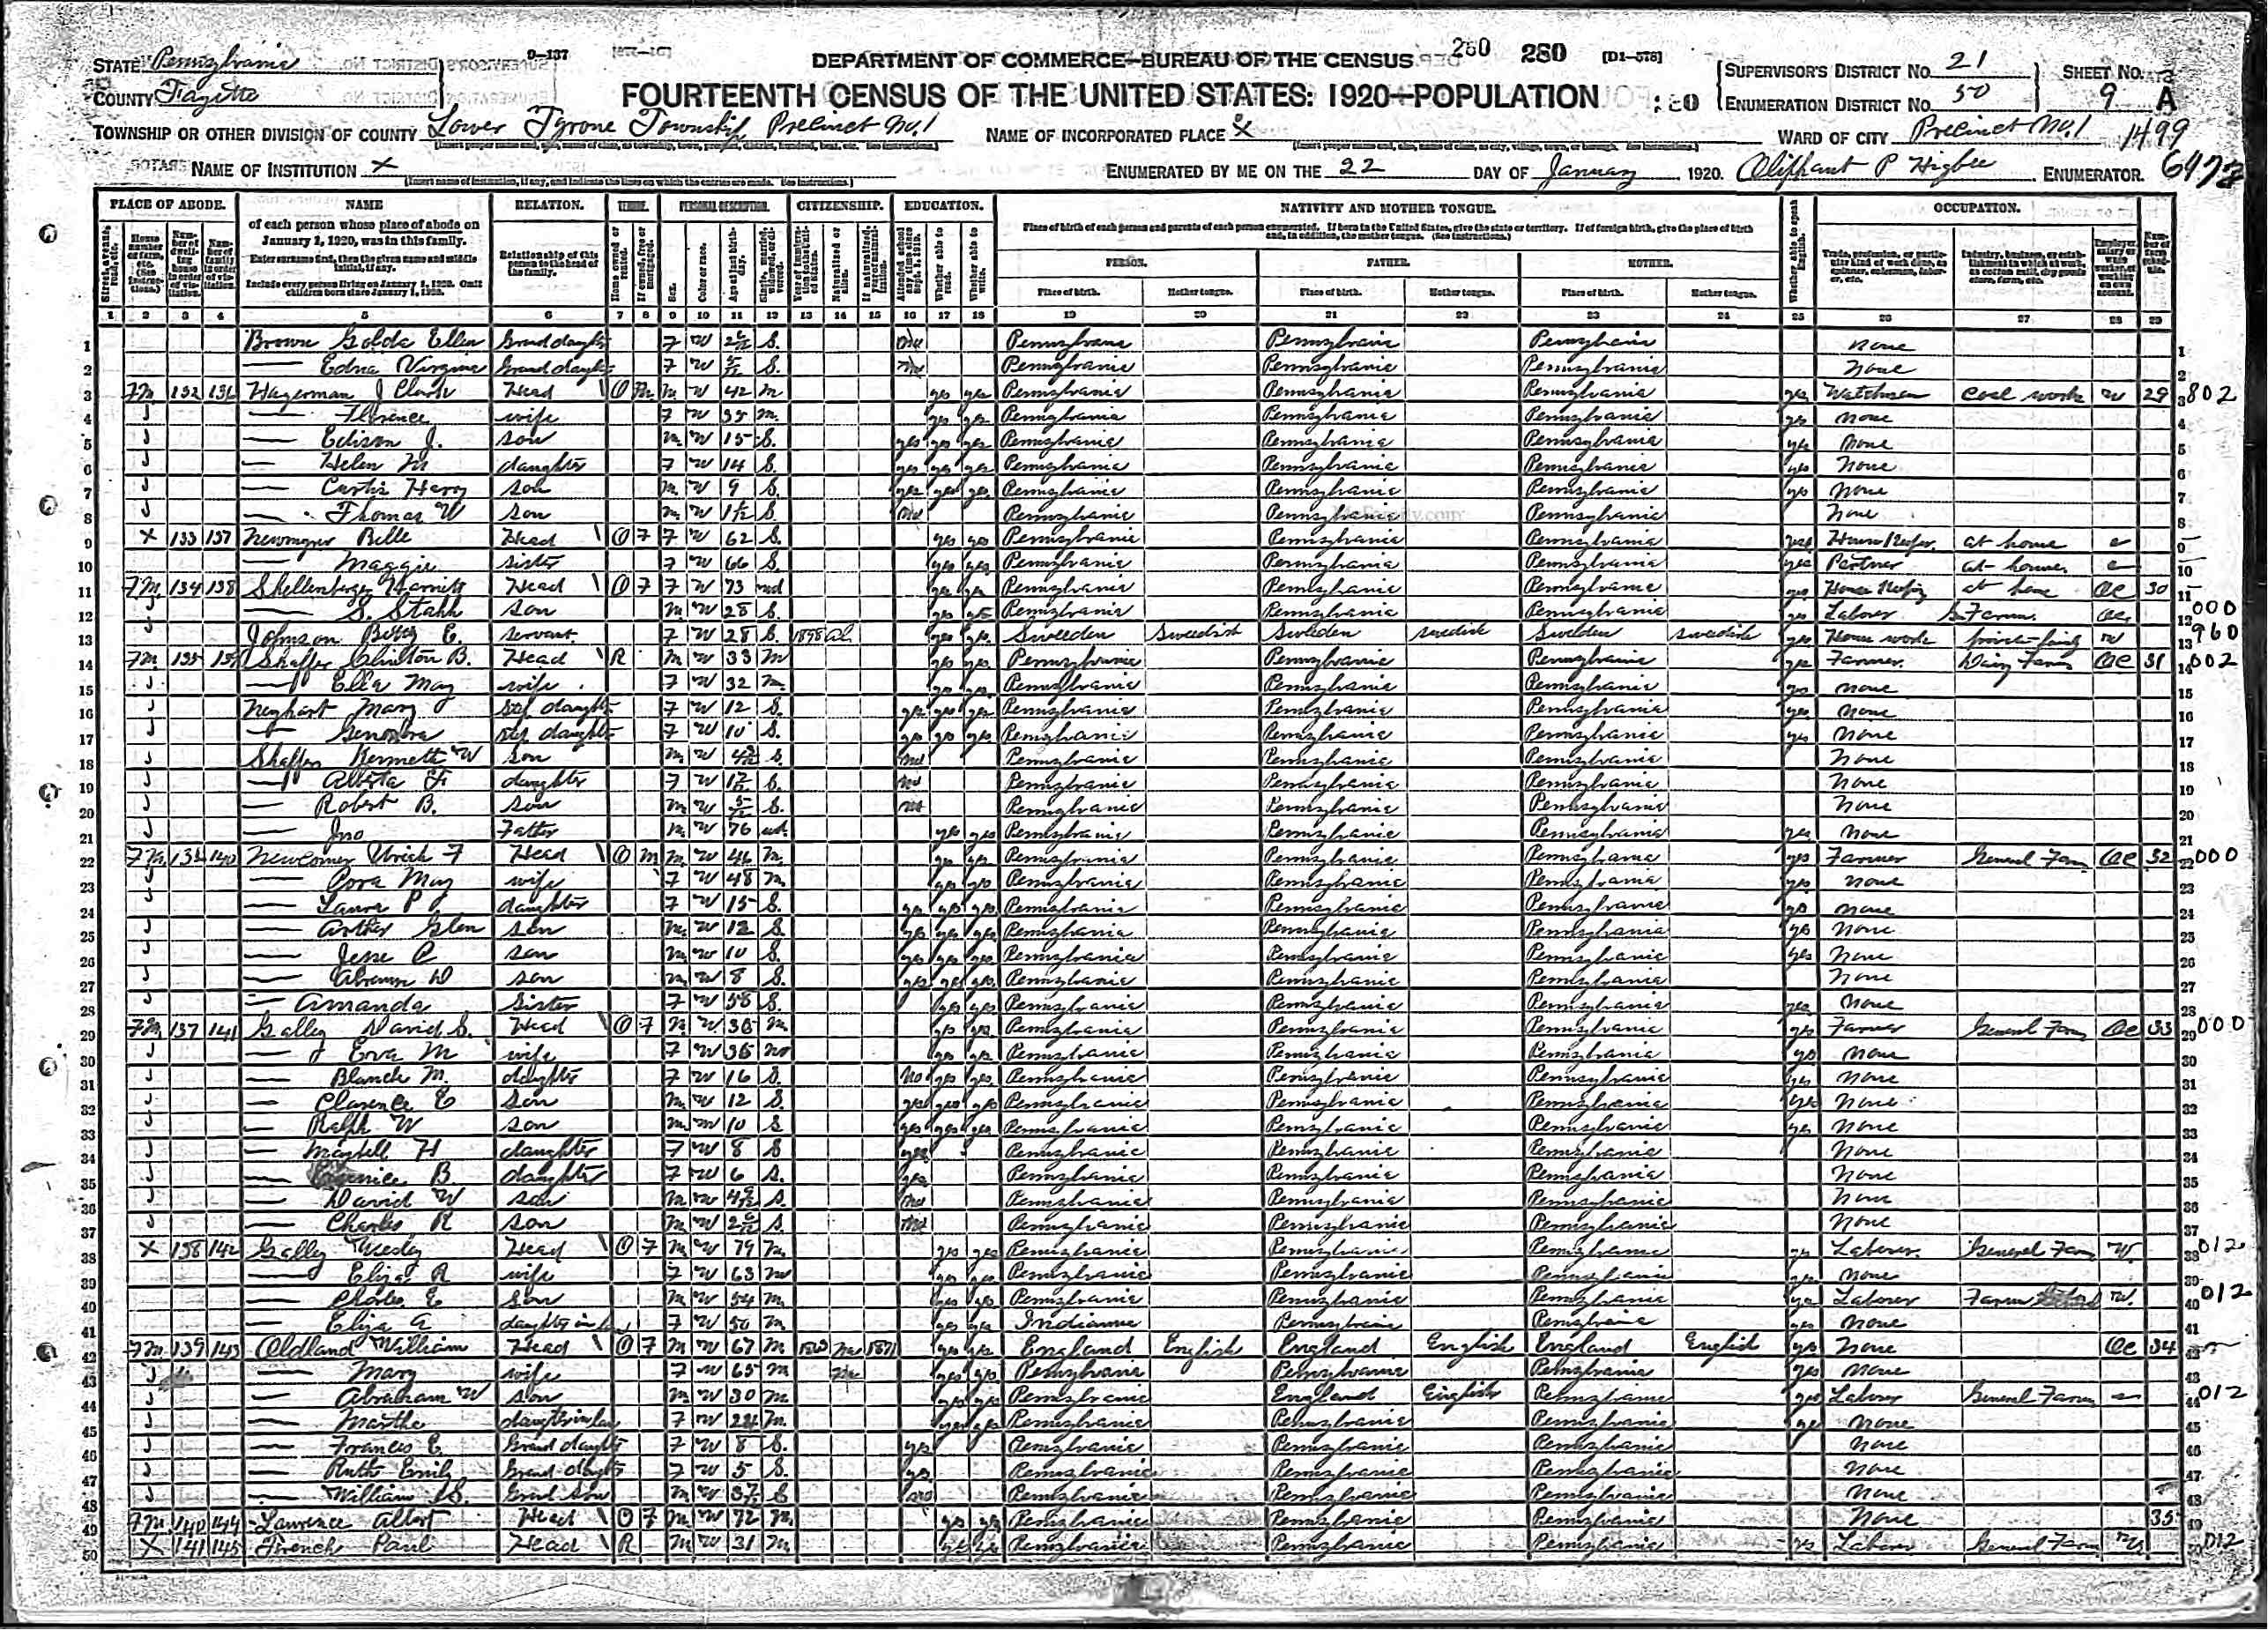 STATE Pennsylvania 9-137 DEPARTMENT OF COMMERCE—BUREAU OF THE CENSUS 280 280 [D1-578] SUPERVISOR'S DISTRICT No. 21 SHEET No.
COUNTY Fayette FOURTEENTH CENSUS OF THE UNITED STATES: 1920—POPULATION 280 ENUMERATION DISTRICT No. 50 9 A
TOWNSHIP OR OTHER DIVISION OF COUNTY Lower Tyrone Township Precinct No. 1 NAME OF INCORPORATED PLACE X WARD OF CITY Precinct No. 1 1499
NAME OF INSTITUTION X ENUMERATED BY ME ON THE 22 DAY OF January 1920. Oliphant P Higbee ENUMERATOR. 6472
PLACE OF ABODE. NAME RELATION. TENURE. PERSONAL DESCRIPTION. CITIZENSHIP. EDUCATION. NATIVITY AND MOTHER TONGUE. OCCUPATION.
of each person whose place of abode on January 1, 1920, was in this family.
Enter surname first, then the given name and middle initial, if any.
Include every person living on January 1, 1920. Omit children born since January 1, 1920.
Relationship of this person to the head of the family.
Place of birth of each person and parents of each person enumerated. If born in the United States, give the state or territory. If of foreign birth, give the place of birth and, in addition, the mother tongue. (See instructions.)
PERSON. FATHER. MOTHER.
Place of birth. Mother tongue. Place of birth. Mother tongue. Place of birth. Mother tongue.
1 2 3 4 5 6 7 8 9 10 11 12 13 14 15 16 17 18 19 20 21 22 23 24 25 26 27 28 29
1 Brown Golda Ellen Grand daughter F W S. Pennsylvania Pennsylvania Pennsylvania none 1
2 — Edna Virginia Grand daughter F W S. Pennsylvania Pennsylvania Pennsylvania None 2
3 Fm 132 136 Hagerman J Clark Head O M M W 42 M yes yes Pennsylvania Pennsylvania Pennsylvania yes Watchman Coal works W 29 3 802
4 — Florence wife F W 35 M yes yes Pennsylvania Pennsylvania Pennsylvania yes none 4
5 — Edison J. son M W 15 S. yes yes yes Pennsylvania Pennsylvania Pennsylvania yes None 5
6 — Helen M daughter F W 14 S. yes yes yes Pennsylvania Pennsylvania Pennsylvania yes None 6
7 — Curtis Harry son M W 9 S. yes yes yes Pennsylvania Pennsylvania Pennsylvania yes None 7
8 — Thomas W son M W S. no Pennsylvania Pennsylvania Pennsylvania None 8
9 X 133 137 Newmyer Belle Head O F F W 62 S. yes yes Pennsylvania Pennsylvania Pennsylvania yes House Keeper at home 9
10 — Maggie sister F W 66 S. yes yes Pennsylvania Pennsylvania Pennsylvania yes Partner at home 10
11 Fm 134 138 Shellenberger Harriett Head O F F W 73 wd yes yes Pennsylvania Pennsylvania Pennsylvania yes House Keeping at home 30 11
12 — S. Stahl son M W 28 S. yes yes Pennsylvania Pennsylvania Pennsylvania yes Laborer G. Farm 12 000
13 Johnson Betty E. servant F W 28 S. 1898 al yes yes Sweeden Swedish Sweden Swedish Sweden Swedish yes House work private family W 13 960
14 Fm 135 139 Shaffer Clinton B. Head R M W 33 M yes yes Pennsylvania Pennsylvania Pennsylvania yes Farmer Dairy Farm 31 14 002
15 — Ella May wife F W 32 M yes yes Pennsylvania Pennsylvania Pennsylvania yes none 15
16 Neghart Mary Step daughter F W 12 S. yes yes yes Pennsylvania Pennsylvania Pennsylvania yes none 16
17 — Genevra Step daughter F W 10 S. yes yes yes Pennsylvania Pennsylvania Pennsylvania yes None 17
18 Shaffer Kermett W son M W S. no Pennsylvania Pennsylvania Pennsylvania None 18
19 — Alberta F daughter F W S. no Pennsylvania Pennsylvania Pennsylvania None 19
20 — Robert B. son M W S. no Pennsylvania Pennsylvania Pennsylvania None 20
21 — Jno Father M W 76 wd yes yes Pennsylvania Pennsylvania Pennsylvania yes None 21
22 Fm 136 140 Newcomer Urich F Head O M M W 46 M yes yes Pennsylvania Pennsylvania Pennsylvania yes Farmer General Farm 32 22 000
23 — Cora May wife F W 48 M yes yes Pennsylvania Pennsylvania Pennsylvania yes none 23
24 — Laura P daughter F W 15 S. yes yes yes Pennsylvania Pennsylvania Pennsylvania yes none 24
25 — Arther Glen son M W 12 S. yes yes yes Pennsylvania Pennsylvania Pennsylvania yes None 25
26 — Jesse C son M W 10 S. yes yes yes Pennsylvania Pennsylvania Pennsylvania yes None 26
27 — Abram D son M W 8 S. yes yes yes Pennsylvania Pennsylvania Pennsylvania None 27
28 — Amanda Sister F W 58 S. yes yes Pennsylvania Pennsylvania Pennsylvania yes None 28
29 Fm 137 141 Galley David S. Head O F M W 36 M yes yes Pennsylvania Pennsylvania Pennsylvania yes Farmer General Farm 33 29 000
30 — Eva M wife F W 36 M yes yes Pennsylvania Pennsylvania Pennsylvania yes None 30
31 — Blanch M. daughter F W 16 S. No yes yes Pennsylvania Pennsylvania Pennsylvania yes None 31
32 — Clarence E son M W 12 S. yes yes yes Pennsylvania Pennsylvania Pennsylvania yes None 32
33 — Ralph W son M W 10 S yes yes yes Pennsylvania Pennsylvania Pennsylvania yes None 33
34 — Maybell H daughter F W 8 S yes Pennsylvania Pennsylvania Pennsylvania None 34
35 — B. daughter F W 6 S. yes Pennsylvania Pennsylvania Pennsylvania None 35
36 — David W son M W S. no Pennsylvania Pennsylvania Pennsylvania None 36
37 — Charles R son M W S. no Pennsylvania Pennsylvania Pennsylvania None 37
38 X 138 142 Galley Wesley Head O F M W 79 M yes yes Pennsylvania Pennsylvania Pennsylvania yes Laborer General Farm W. 38 012
39 — Eliza R wife F W 63 M yes yes Pennsylvania Pennsylvania Pennsylvania yes none 39
40 — Charles E son M W 54 M yes yes Pennsylvania Pennsylvania Pennsylvania yes Laborer Farm W. 40 012
41 — Eliza A daughter in law F W 50 M yes yes Indianna Pennsylvania Pennsylvania yes none 41
42 Fm 139 143 Oldland William Head O F M W 67 M yes yes England English England English England English yes None 34 42
43 — Mary wife F W 65 M yes yes Pennsylvania Pennsylvania Pennsylvania yes None 43
44 — Abraham W son M W 30 M yes yes Pennsylvania England English Pennsylvania yes Laborer General Farm 44 012
45 — Martha daughter in law F W 24 M yes yes Pennsylvania Pennsylvania Pennsylvania yes None 45
46 — Frances E. Grand daughter F W 8 S. yes Pennsylvania Pennsylvania Pennsylvania None 46
47 — Ruth Emily Grand daughter F W 5 S. yes Pennsylvania Pennsylvania Pennsylvania None 47
48 — William Grand Son M W S no Pennsylvania Pennsylvania Pennsylvania None 48
49 Fm 140 144 Lawrence Albert Head O F M W 72 M yes yes Pennsylvania Pennsylvania Pennsylvania None 35 49
50 X 141 145 French Paul Head R M W 31 M yes yes Pennsylvania Pennsylvania Pennsylvania yes Laborer General Farm W 50 012